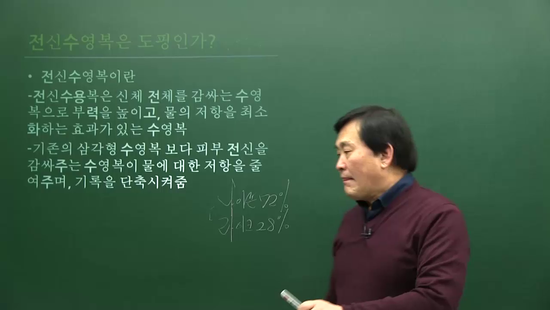 전신수영복은 도핑인가?
• 전신수영복이란
-전신수용복은 신체 전체를 감싸는 수영
복으로 부력을 높이고, 물의 저항을 최소
화하는 효과가 있는 수영복
-기존의 삼각형 수영복 보다 피부 전신을
감싸주는 수영복이 물에 대한 저항을 줄
여주며, 기록을 단축시켜줌
72%
28%